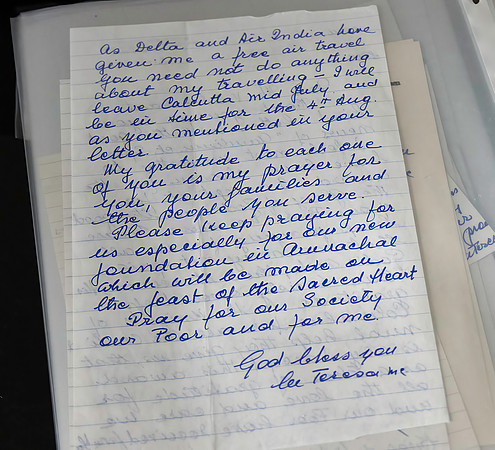 As Delta and Air India have
given me a free air travel
you need not do anything
about my travelling – I will
leave Calcutta mid July and
be in time for the 4th Aug.
as you mentioned in your
letter.
My gratitude to each one
of you is my prayer for
you, your families and
the people you serve.
Please keep praying for
us especially for our new
foundation in Arunachal
which will be made on
the feast of the Sacred Heart
Pray for our Society
our Poor and for me
God bless you
lee Teresa mc